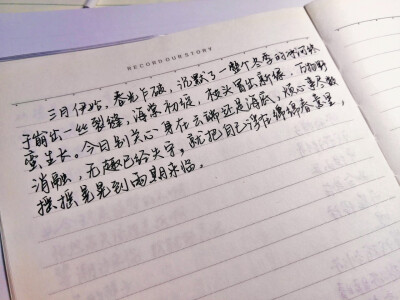 RECORD OUR STORY
三月伊始，春光乍破，沉默了一整个冬季的冰河终
于崩出一丝裂缝，海棠初绽，枝头冒出新绿，万物野
蛮生长。今日别关心身在云端还是海底，烦心事尽数
消融，无趣已经失守。就把自己浮在绵绵春意里，
摇摇晃晃到雨期来临。